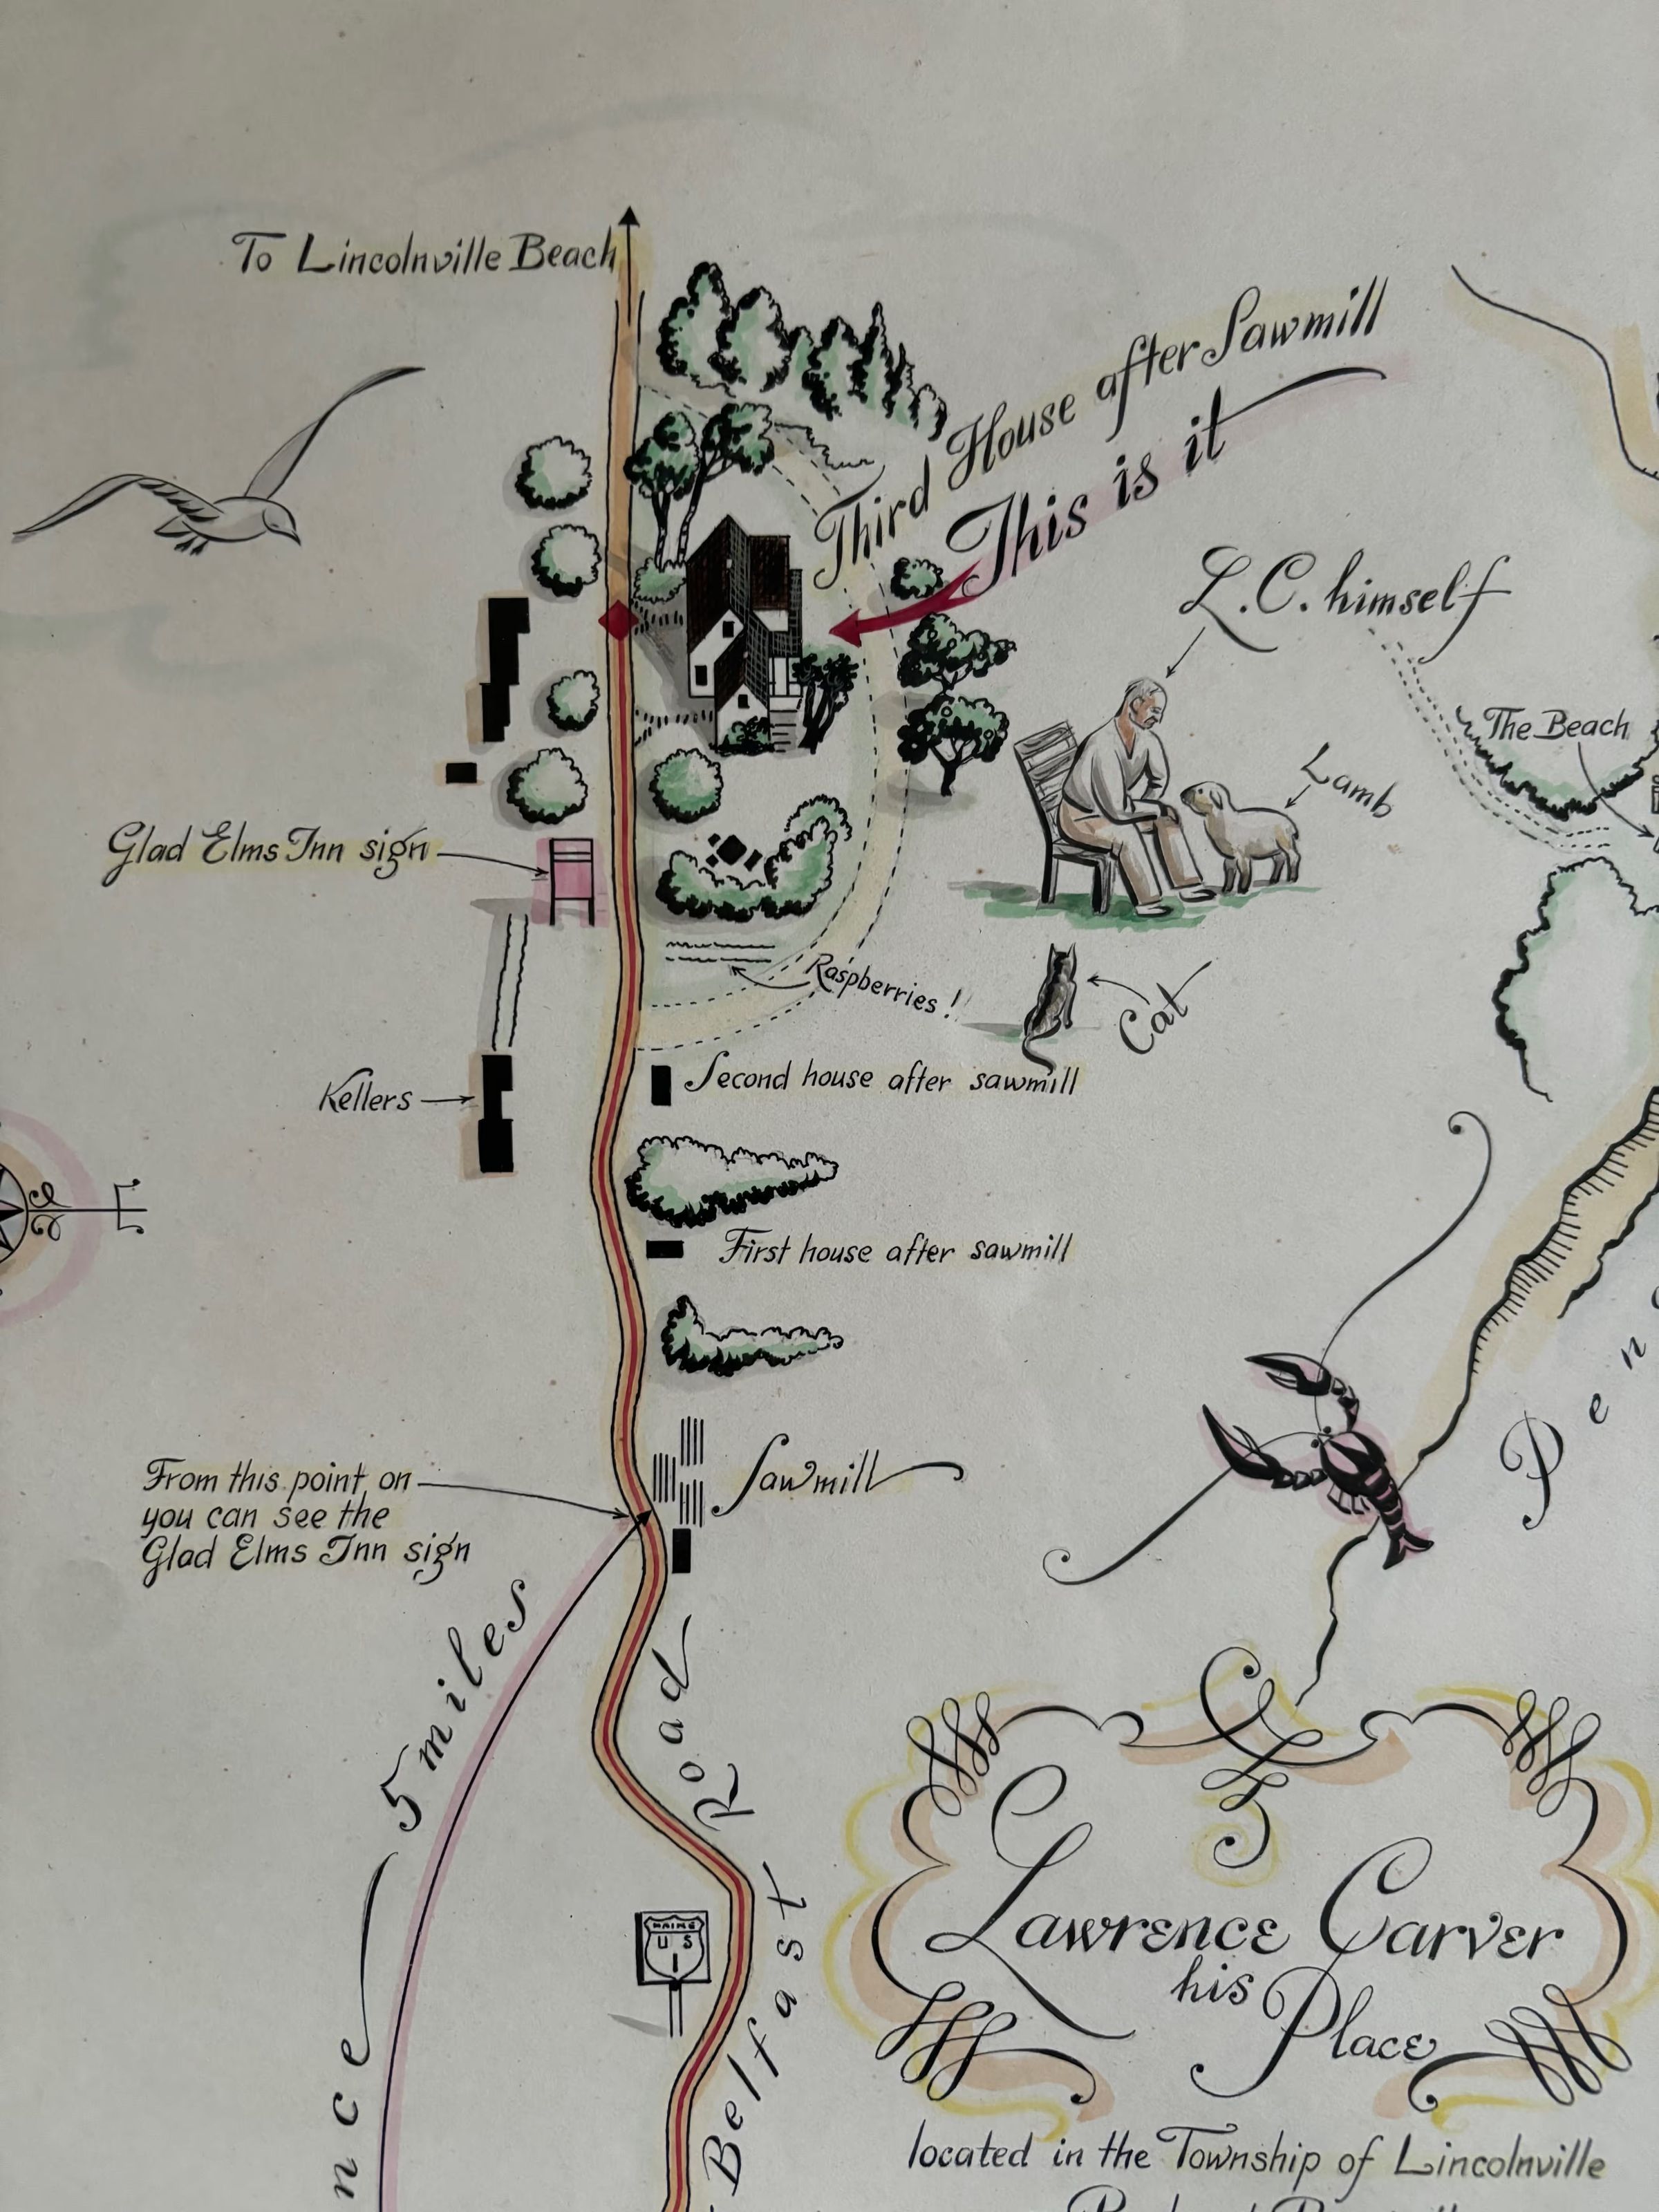 To Lincolnville Beach
Third House after Sawmill
This is it
L.C. himself
The Beach
Lamb
Glad Elms Inn sign
Raspberries!
Cat
Kellers
Second house after sawmill
E
First house after sawmill
From this point on
you can see the
Glad Elms Inn sign
Sawmill
5 miles
Belfast Road
MAINE
U S
1
Lawrence Carver
his
Place
located in the Township of Lincolnville